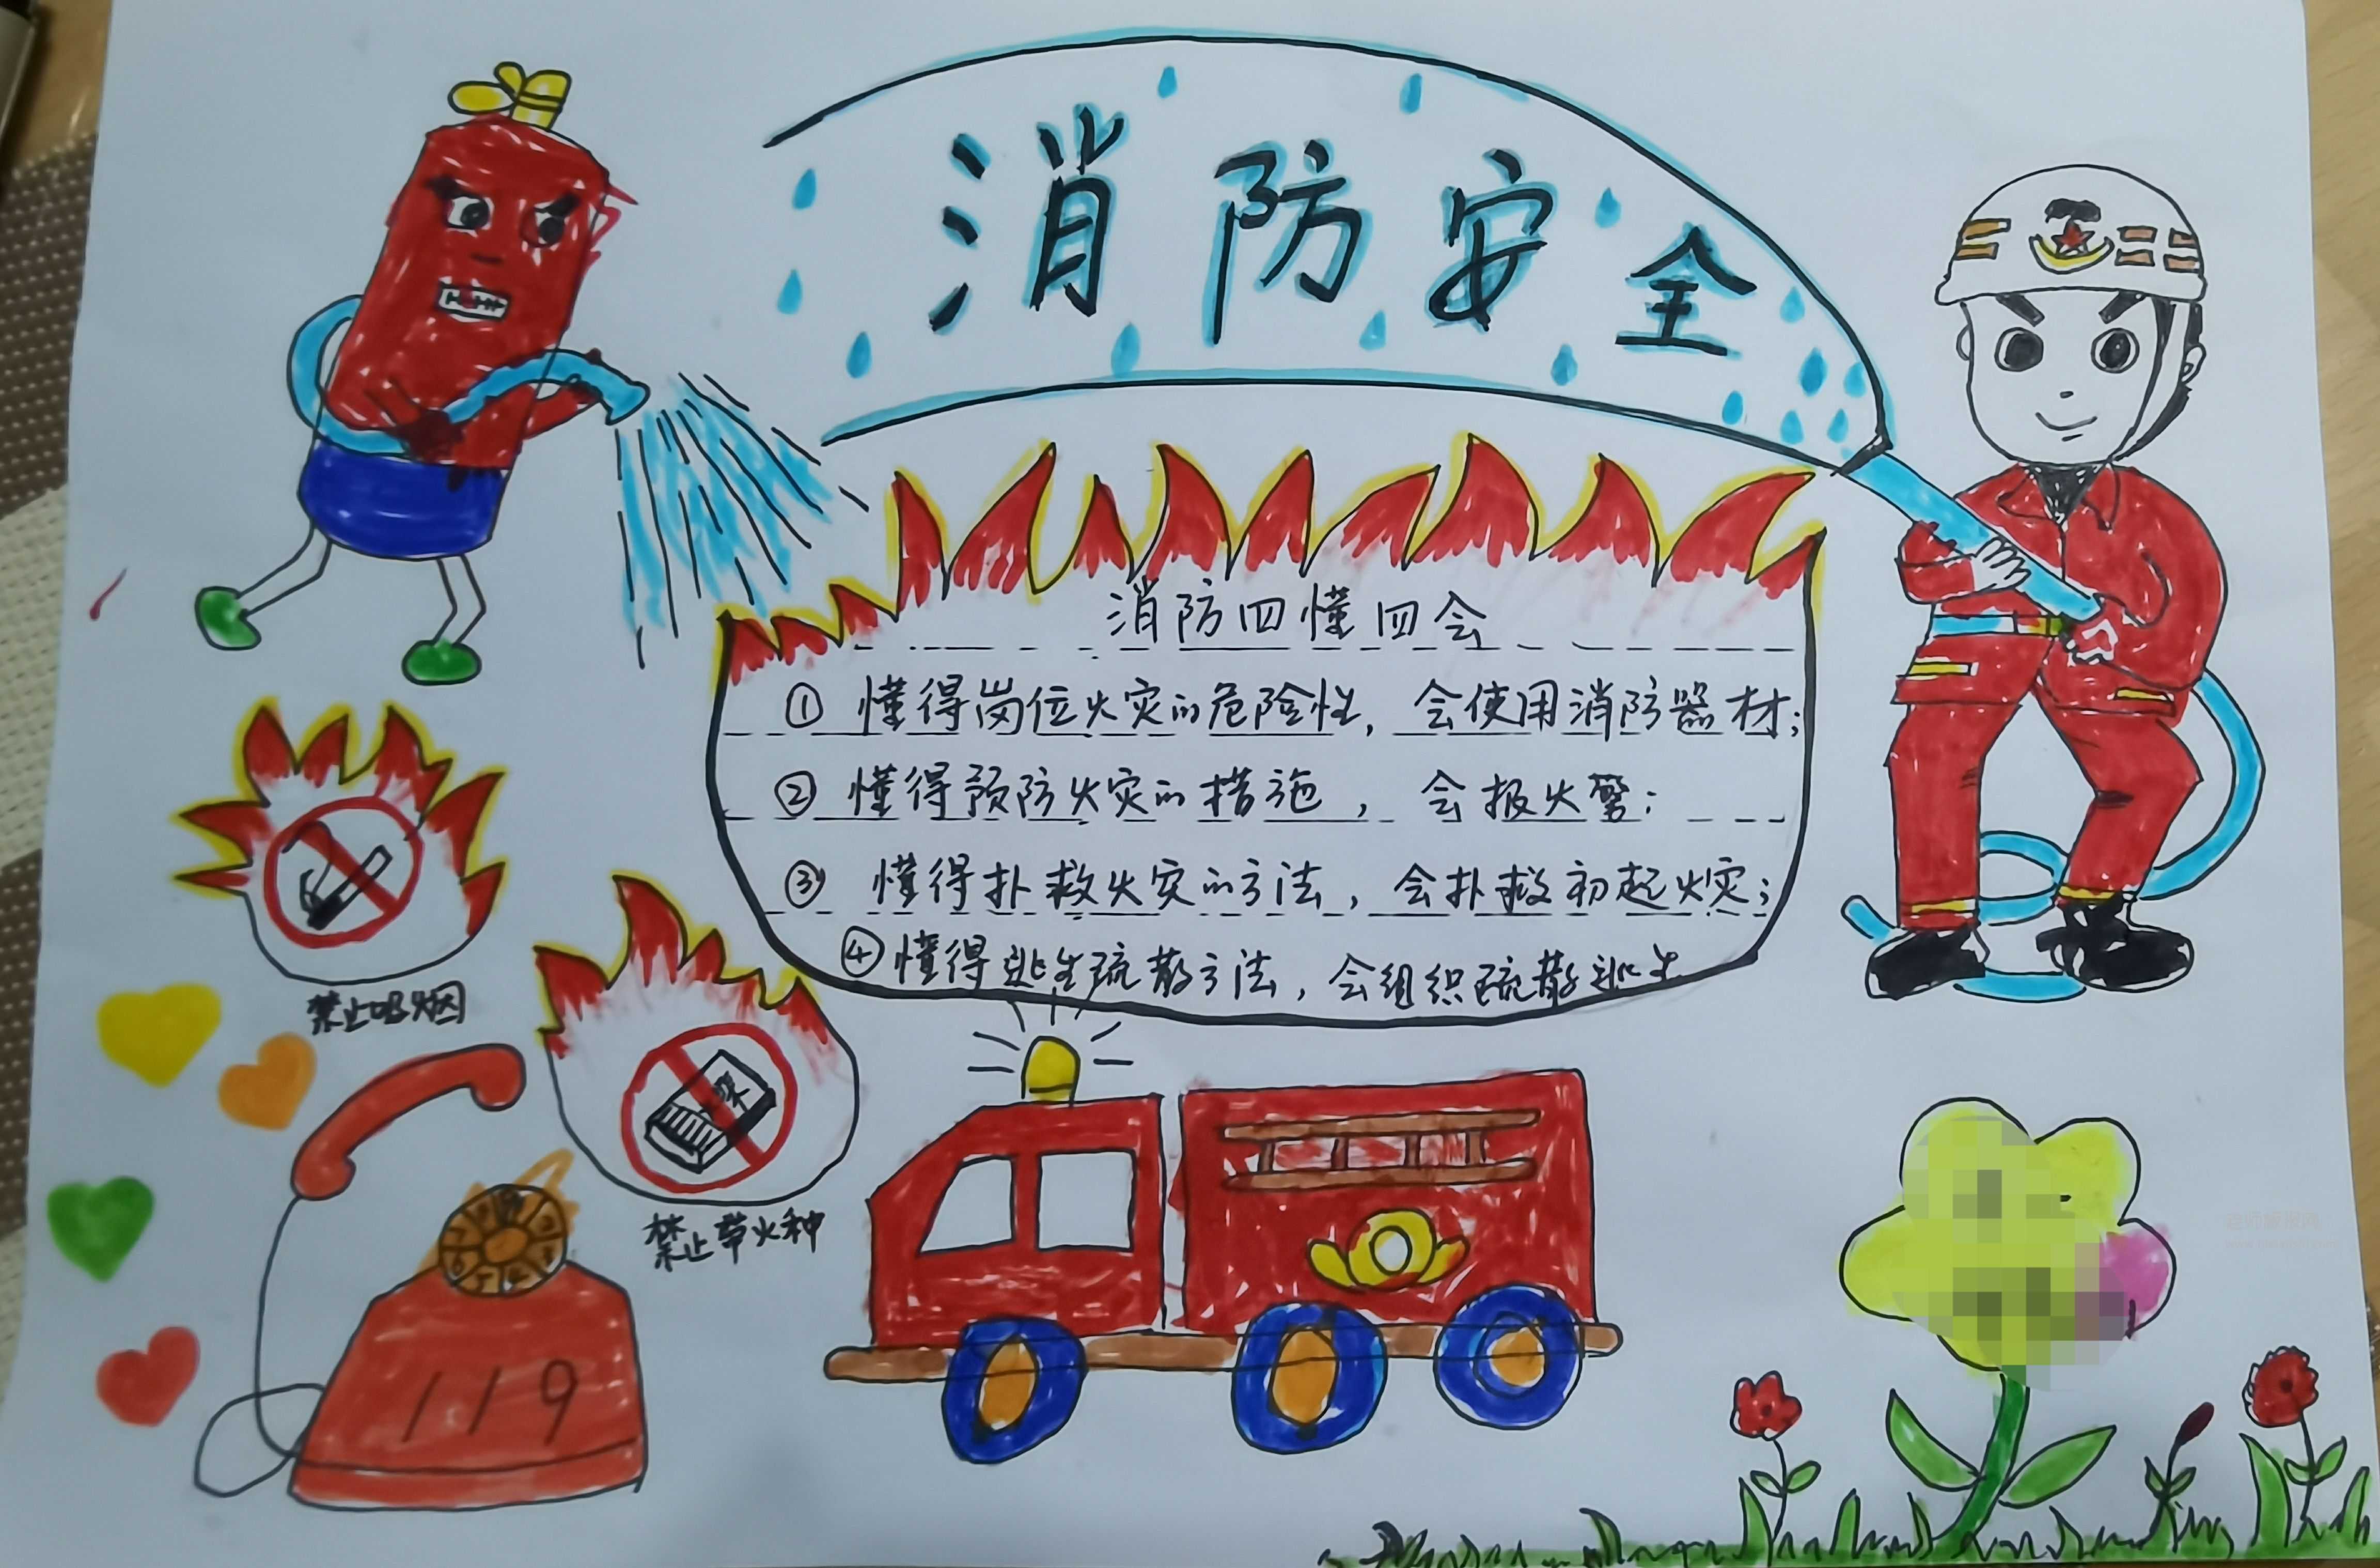 消防安全
消防四懂四会
① 懂得岗位火灾的危险性，会使用消防器材；
② 懂得预防火灾的措施，会报火警；
③ 懂得扑救火灾的方法，会扑救初起火灾；
④ 懂得逃生疏散方法，会组织疏散逃生
禁止吸烟
禁止带火种
119